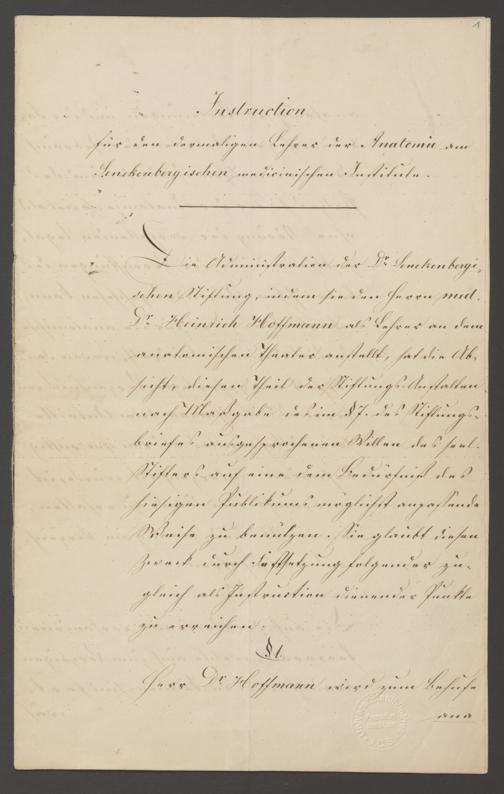 1
Instruction
für den dermaligen Lehrer der Anatomie am
Senckenbergischen medicinischen Institute.
Die Administration der Dr. Senckenbergi-
schen Stiftung, indem sie den Herrn med.
Dr. Heinrich Hoffmann als Lehrer an dem
anatomischen Theater anstellt, hat die Ab-
sicht, diesen Theil der Stiftungs-Anstalten
nach Maßgabe des im §7. des Stiftungs-
briefes ausgesprochenen Willen des seel.
Stifters auf eine dem Bedürfniß des
hiesigen Publikums möglichst anpassende
Weise zu benutzen. Sie glaubt diesen
Zweck durch Festsetzung folgender zu-
gleich als Instruction dienender Punkte
zu erreichen.
§1.
Herr Dr. Hoffmann wird zum Behufe
ana